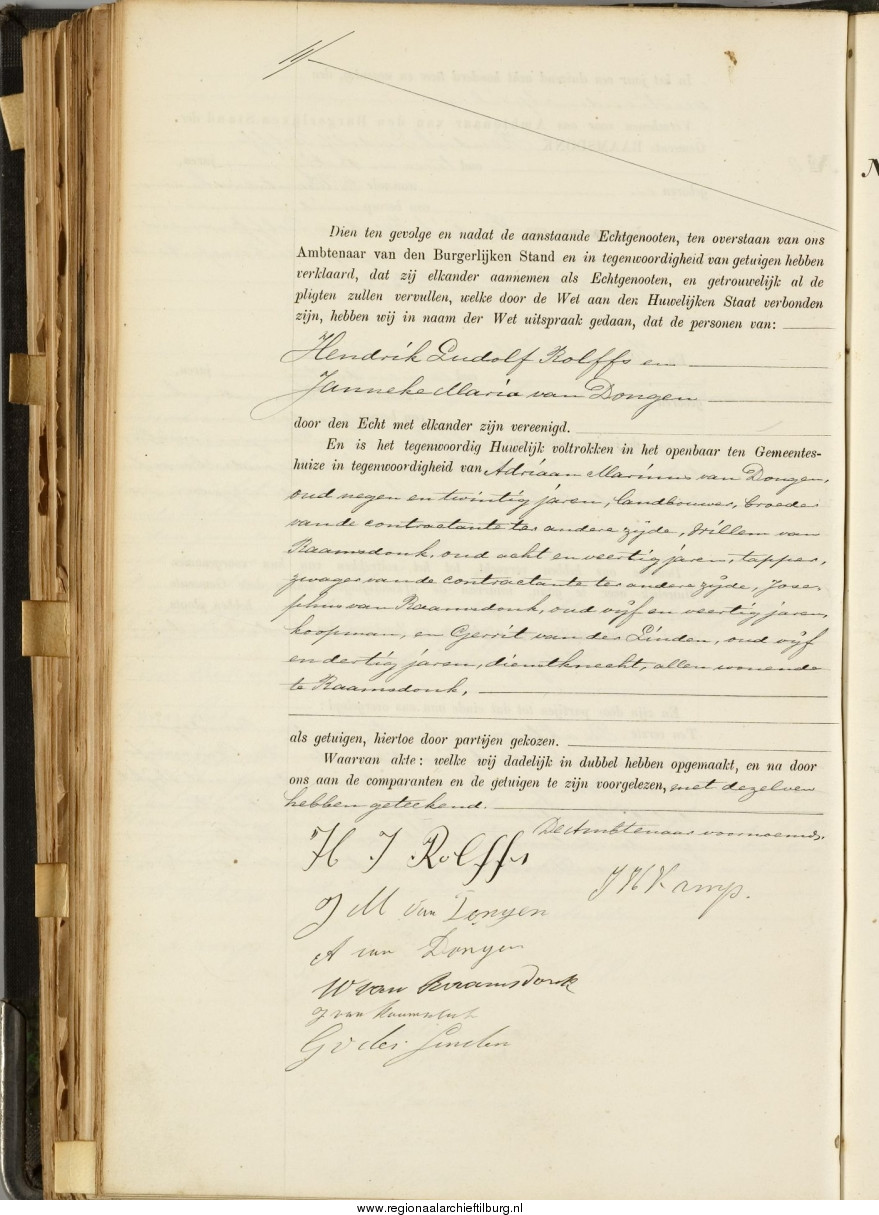 Dien ten gevolge en nadat de aanstaande Echtgenooten, ten overstaan van ons
Ambtenaar van den Burgerlijken Stand en in tegenwoordigheid van getuigen hebben
verklaard, dat zij elkander aannemen als Echtgenooten, en getrouwelijk al de
pligten zullen vervullen, welke door de Wet aan den Huwelijken Staat verbonden
zijn, hebben wij in naam der Wet uitspraak gedaan, dat de personen van:
Hendrik Ludolf Rolffs en
Janneke Maria van Dongen
door den Echt met elkander zijn vereenigd.
En is het tegenwoordig Huwelijk voltrokken in het openbaar ten Gemeentes-
huize in tegenwoordigheid van Adriaan Marinus van Dongen,
oud negen en twintig jaren, landbouwer, broeder
van de contractante ter andere zijde, Willem van
Raamsdonk, oud acht en veertig jaren, tapper,
zwager van de contractante ter andere zijde, Jose-
phus van Raamsdonk, oud vijf en veertig jaren,
koopman, en Gerrit van der Linden, oud vijf
en dertig jaren, dienstknecht, allen wonende
te Raamsdonk,
als getuigen, hiertoe door partijen gekozen.
Waarvan akte: welke wij dadelijk in dubbel hebben opgemaakt, en na door
ons aan de comparanten en de getuigen te zijn voorgelezen, met dezelven
hebben geteekend.
De Ambtenaar voornoemd,
H J Rolffs
J M van Dongen
A van Dongen
W van Raamsdonk
J van Raamsdonk
G v der Linden
www.regionaalarchieftilburg.nl